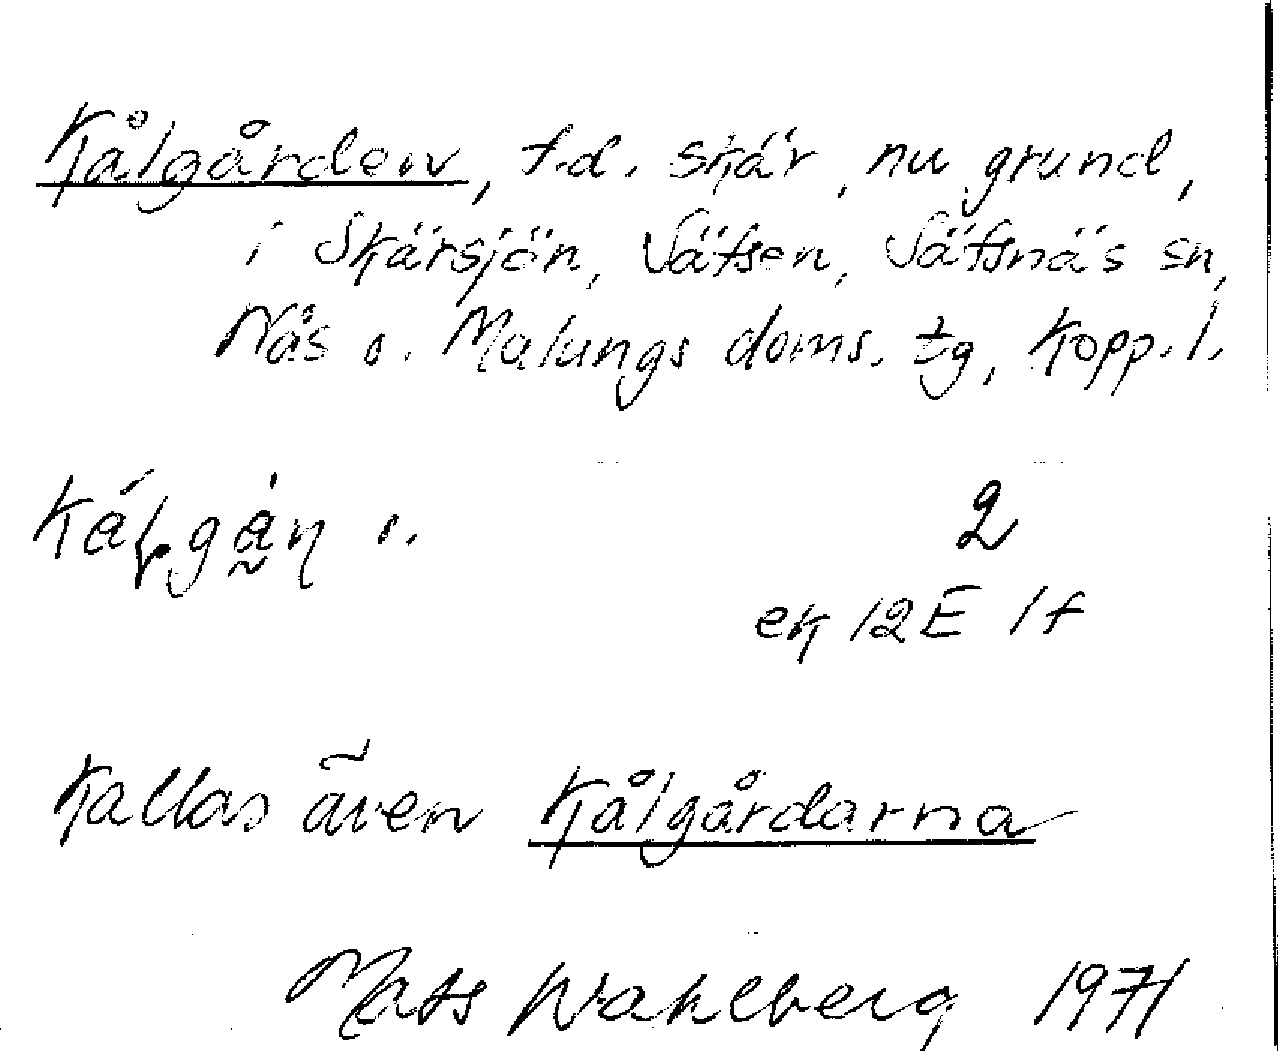 Kålgården, f.d. skär, nu grund,
i Skärsjön, Sätsen, Sätsnäs sn,
Nås o. Malungs doms. tg, Kopp. l.
2
ek 12E 1f
Kallas även Kålgårdarna
Mats Wahlberg 1971